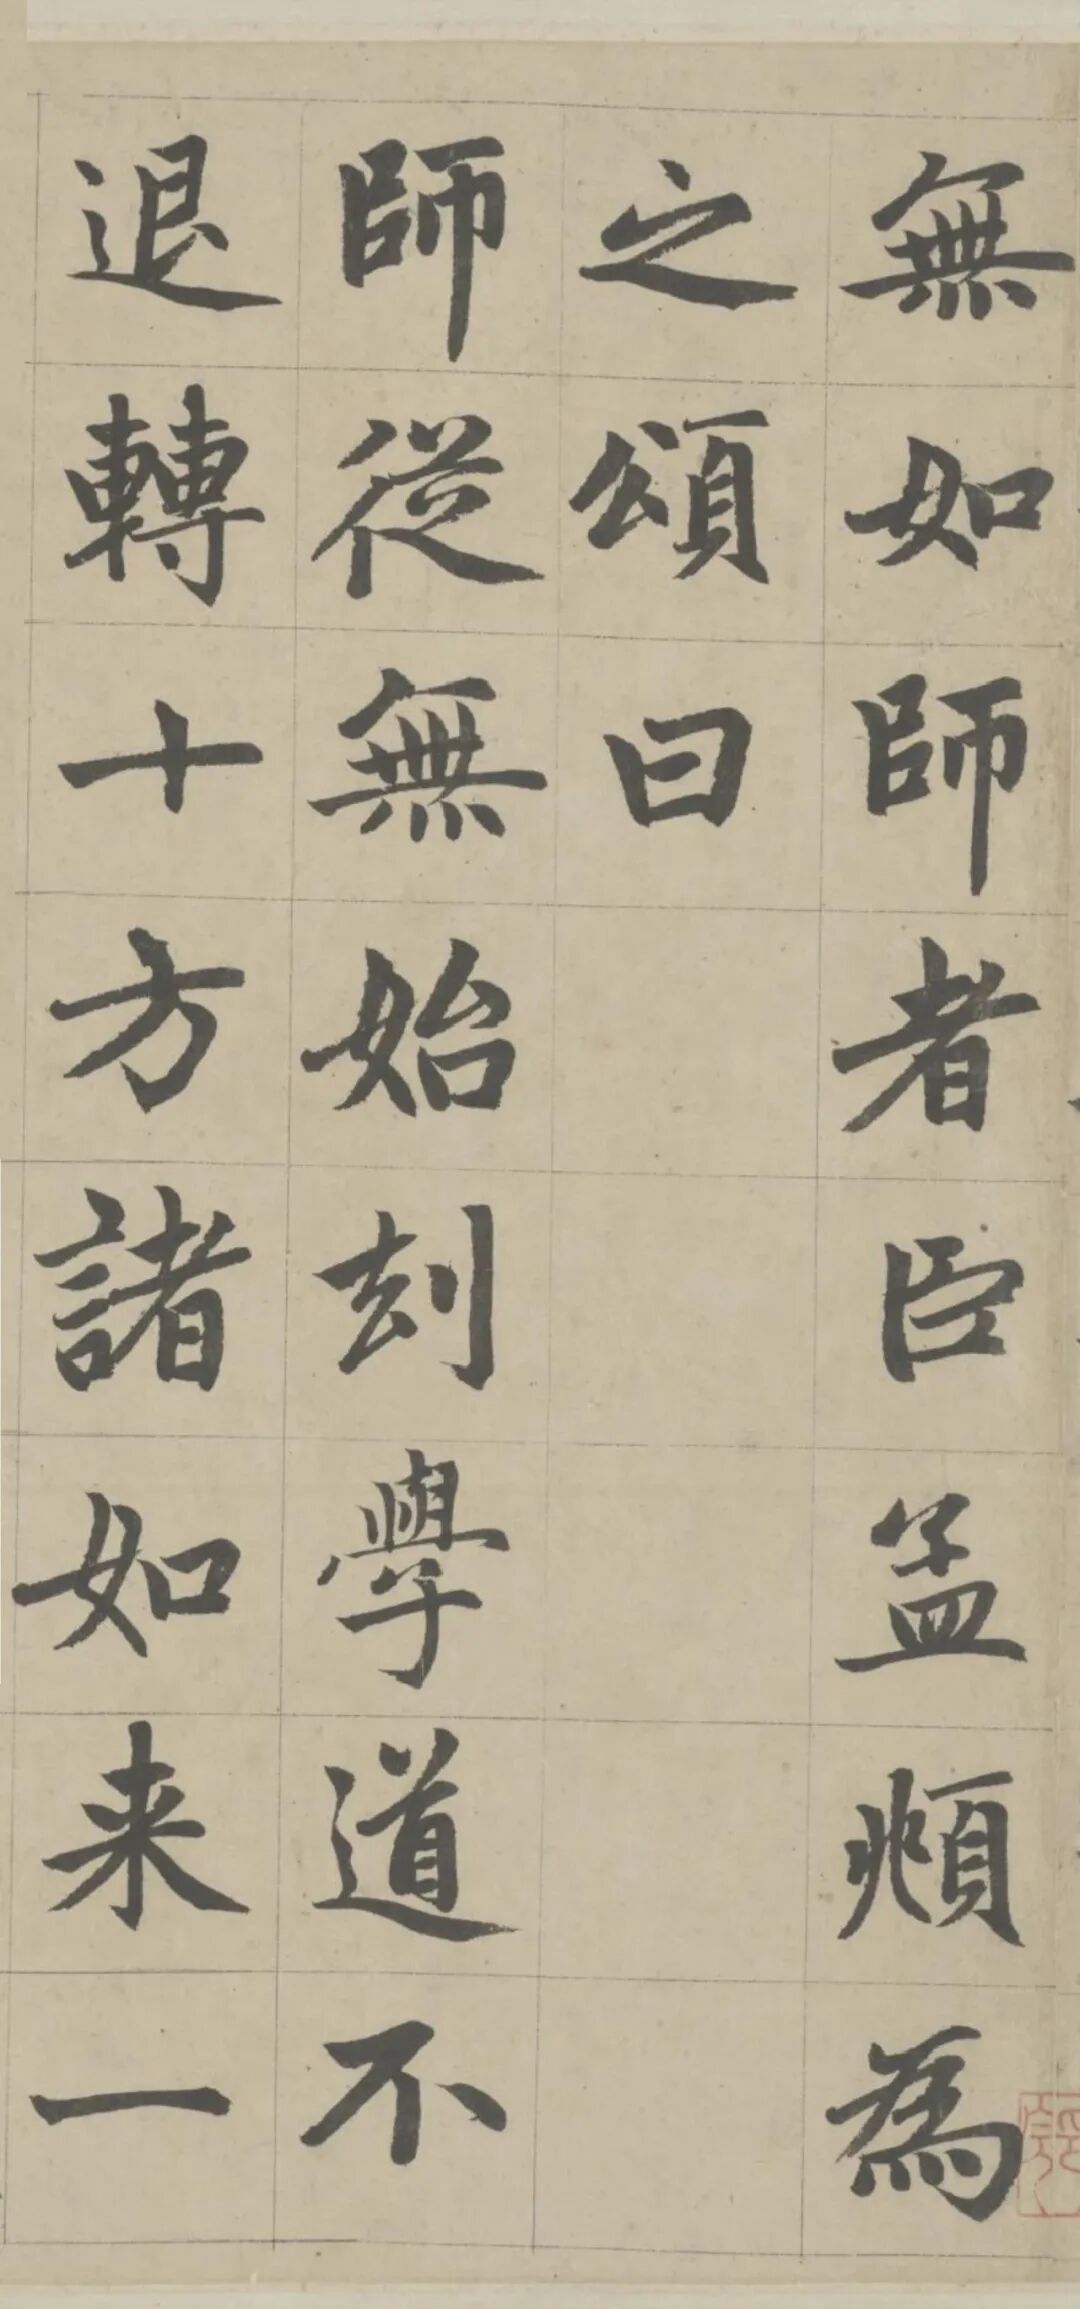 無如師者臣孟頫為
之頌曰
師從無始刧學道不
退轉十方諸如来一